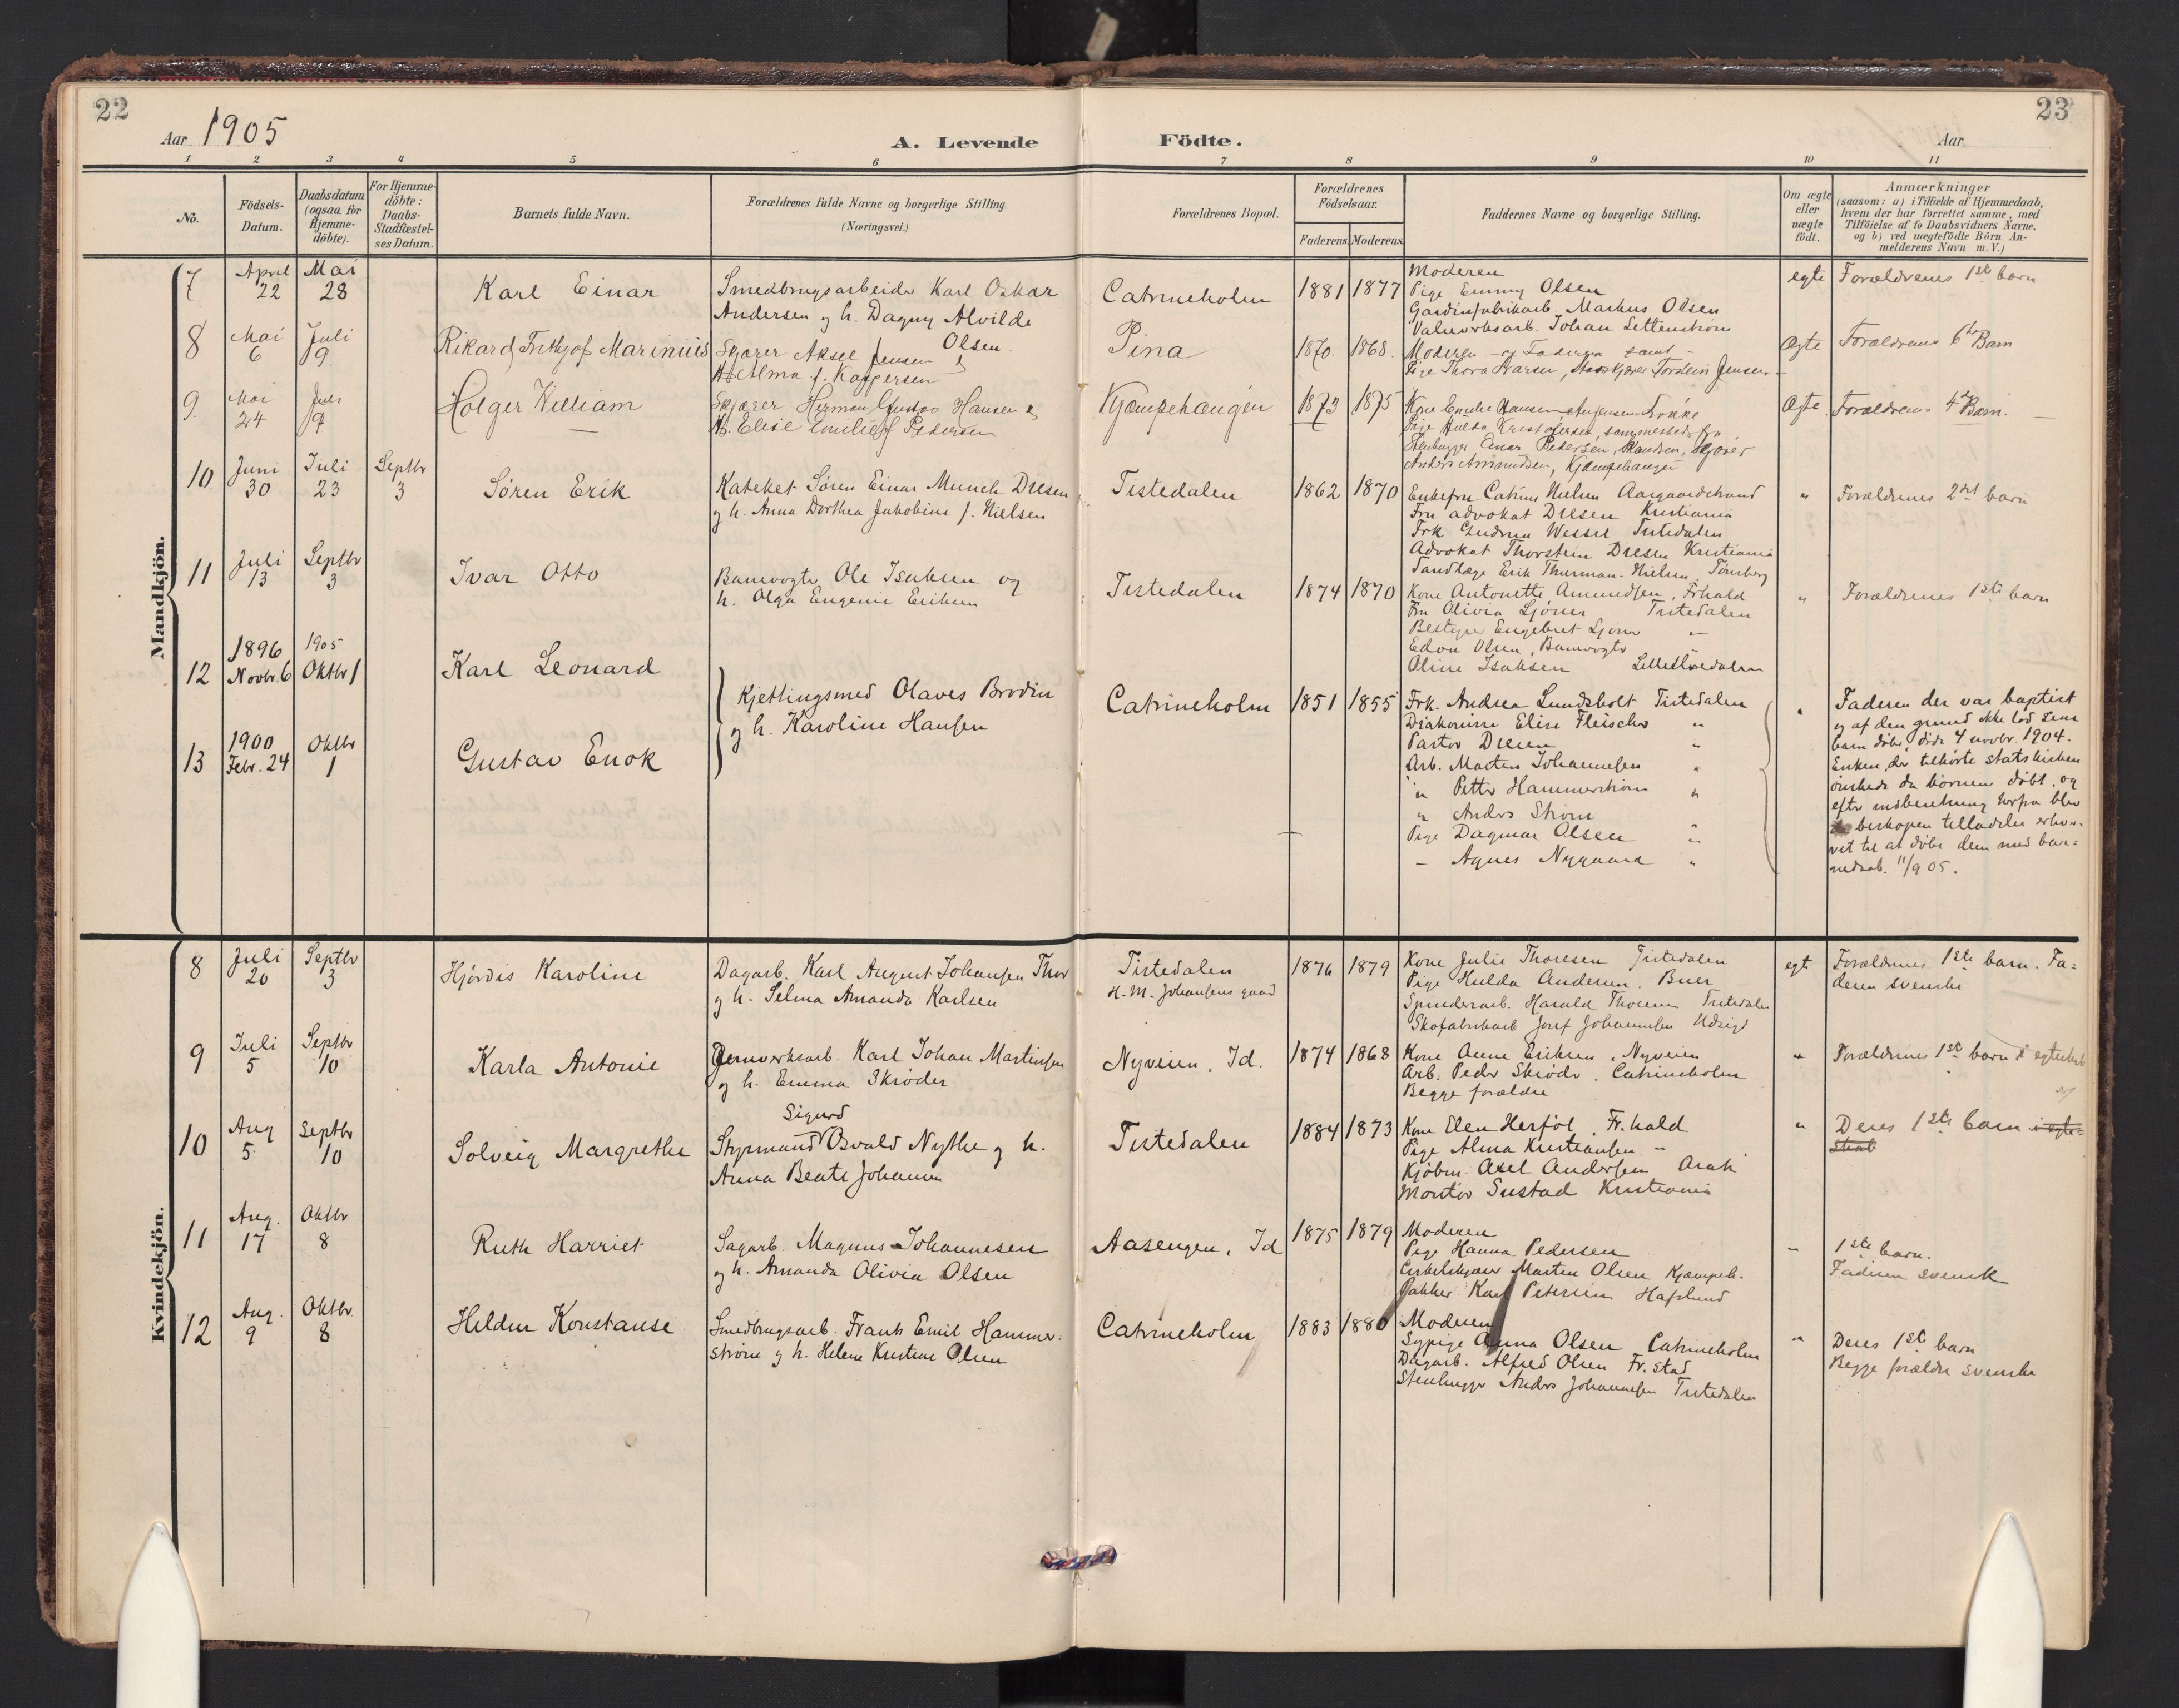 22
23
Aar 1905
A. Levende
Födte.
Aar
1 2 3 4 5 6 7 8 9 10 11
No.
Födsels-Datum.
Daabsdatum (ogsaa for Hjemme-döbte).
For Hjemme-döbte: Daabs-Stadfæstel-ses Datum.
Barnets fulde Navn.
Forældrenes fulde Navne og borgerlige Stilling.
(Næringsvei.)
Forældrenes Bopæl.
Forældrenes Födselsaar.
Faderens. Moderens.
Faddernes Navne og borgerlige Stilling.
Om ægte eller uægte födt.
Anmærkninger
(saasom: a) i Tilfælde af Hjemmedaab,
hvem der har forrettet samme, med
Tilföielse af to Daabsvidners Navne,
og b) ved uægtefödte Börn An-
melderens Navn m. V.)
Mandkjön.
7 April 22 Mai 28 Karl Einar
Smedbrugsarbeider Karl Oskar
Andersen og h. Dagny Alvilde
Olsen
Catrineholm 1881 1877
Moderen
Pige Emmy Olsen
Gardinfabrikarb. Markus Olsen
Valseverksarb. Johan Settenstrøm
egte Forældrenes 1ste barn
8 Mai 6 Juli 9 Rikard Frithjof Marinius
Skjærer Aksel Jensen &
H. Alma f. Kaspersen
Pina 1870. 1868.
Moderen og Faderen samt
Pige Thora Larsen, Torstein Jensen
Ægte Forældrenes 6te Barn
9. Mai 24 Juli 9 Holger William
Skjærer Herman Gustav Hansen &
H. Elise Emilie f. Pedersen
Kjæmpehaugen 1873 1875
Kone Emilie Hansen
Pige Hulda Kristofersen, sammesteds fra
Stenhugger Einar Pedersen,
Anders Amundsen, Kjæmpehaugen
Ægte. Forældrenes 4de Barn.
10 Juni 30 Juli 23 Septbr 3 Søren Erik
Kateket Søren Einar Munch Diesen
og h. Anna Dorthea Jakobine f. Nielsen
Tistedalen 1862 1870
Enkefru Catrine Nielsen Aasgaardstrand
Fru advokat Diesen Kristiania
Frk Gudrun Wessel Tistedalen
Advokat Thorstein Diesen Kristiania
Tandlæge Erik Thurman-Nielsen, Tønsberg
" Forældrenes 2det barn
11 Juli 13 Septbr 3 Ivar Otto
Banevogter Ole Isaksen og
h. Olga Eugenie Eriksen
Tistedalen 1874 1870
Kone Antonette Amundsen, Frhald
Fru Olivia Sjøner Tistedalen
Bestyrer Engebret Sjøner "
Edvin Olsen, Banevogter "
Oline Isaksen
" Forældrenes 1ste barn
12 1896 Novbr. 6 1905 Oktbr 1 Karl Leonard
13 1900 Febr. 24 Oktbr 1 Gustav Enok
Kjettingsmed Olaves Brodin
og h. Karoline Hansen
Catrineholm 1851 1855
Frk. Andrea Lundsholt Tistedalen
Diakonisse Elise Fleischer "
Pastor Diesen "
Arb. Martin Johannesen "
" Petter Hammerstrøm "
" Anders Strøm
Pige Dagmar Olsen "
- Agnes Nygaard "
" Faderen der var baptist
og af den grund ikke lod sine
barn døbe, døde 4 novbr. 1904.
Enken, der tilhørte statskirken
ønskede da børnene døbt, og
efter indberetning herfra blev
biskopen tilladelse erhver-
vet til at døbe dem med bar-
nedaab. 11/9 05.
Kvindekjön.
8 Juli 20 Septbr 3 Hjørdis Karoline
Dagarb. Karl August Johansen Thor
og h. Selma Amanda Karlsen
Tistedalen
H. M. Johansens gaard
1876 1879
Kone Julie Thoresen Tistedalen
Pige Hulda Andersen, Buer
Spinderarb. Harald Thoresen Tistedalen
Skofabrikarb Josef Johannesen
egte Forældrenes 1ste barn. Fa-
deren svenske
9 Juli 5 Septbr 10 Karla Antonie
Jernverksarb. Karl Johan Martinsen
og h. Emma Skrøder
Nyveien, Id. 1874 1868
Kone Anne Eriksen, Nyveien
Arb. Peder Skrøder, Catrineholm
Begge forældre
" Forældrenes 1ste barn i egteskab
10 Aug 5 Septbr 10 Solveig Margrethe
Sigurd
Styrmand Osvald Nythe og h.
Anna Beate Johannesen
Tistedalen 1884 1873
Kone Elen Herføl, Fr.hald
Pige Alma Kristiansen "
Kjøbm. Axel Andersen
Montør Sustad Kristiania
" Deres 1ste barn i egte-
skab
11 Aug. 17 Oktbr 8 Ruth Harriet
Sagarb. Magnus Johannesen
og h. Amanda Olivia Olsen
Aasengen, Id 1875 1879
Moderen
Pige Hanna Pedersen
Cirkelskjærer Martin Olsen Kjæmpeh.
Pakker Karl Petersen Hafslund
" 1ste barn.
Faderen svensk
12 Aug. 9 Oktbr 8 Heldur Konstanse
Smedbrugsarb. Frank Emil Hammer-
strøm og h. Helene Kristine Olsen
Catrineholm 1883 1880
Moderen
Sypige Anna Olsen Catrineholm
Dagarb. Alfred Olsen Fr.stad
Stenhugger Anders Johannesen Tistedalen
" Deres 1ste barn
Begge forældre svenske